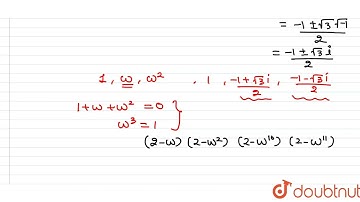 = -1 ± √3 √-1 / 2
= -1 ± √3 i / 2
1, ω, ω² , 1, -1+√3 i / 2, -1-√3 i / 2
1+ω+ω² = 0
ω³ = 1
(2-ω) (2-ω²) (2-ω¹⁰) (2-ω¹¹)
doubtnut